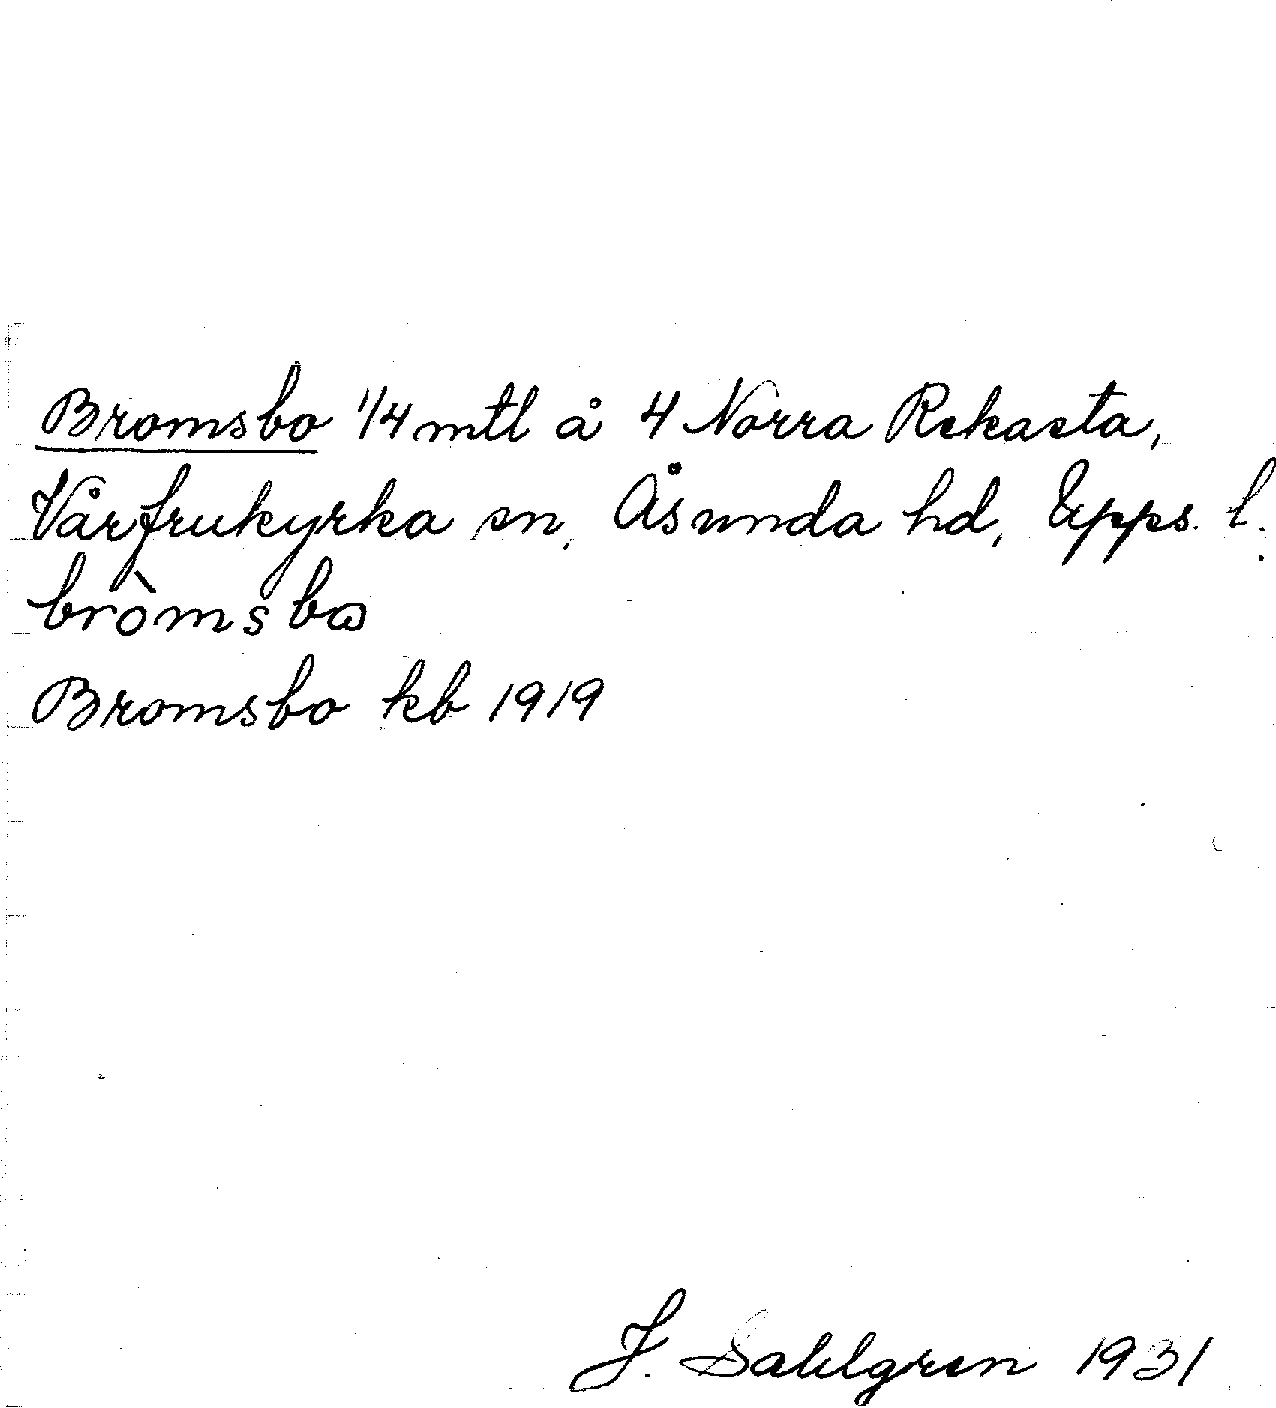 Bromsbo 1/4 mtl å 4 Norra Rekasta,
Vårfrukyrka sn, Åsunda hd, Upps. l.
bròmsbω
Bromsbo kb 1919
J. Sahlgren 1931